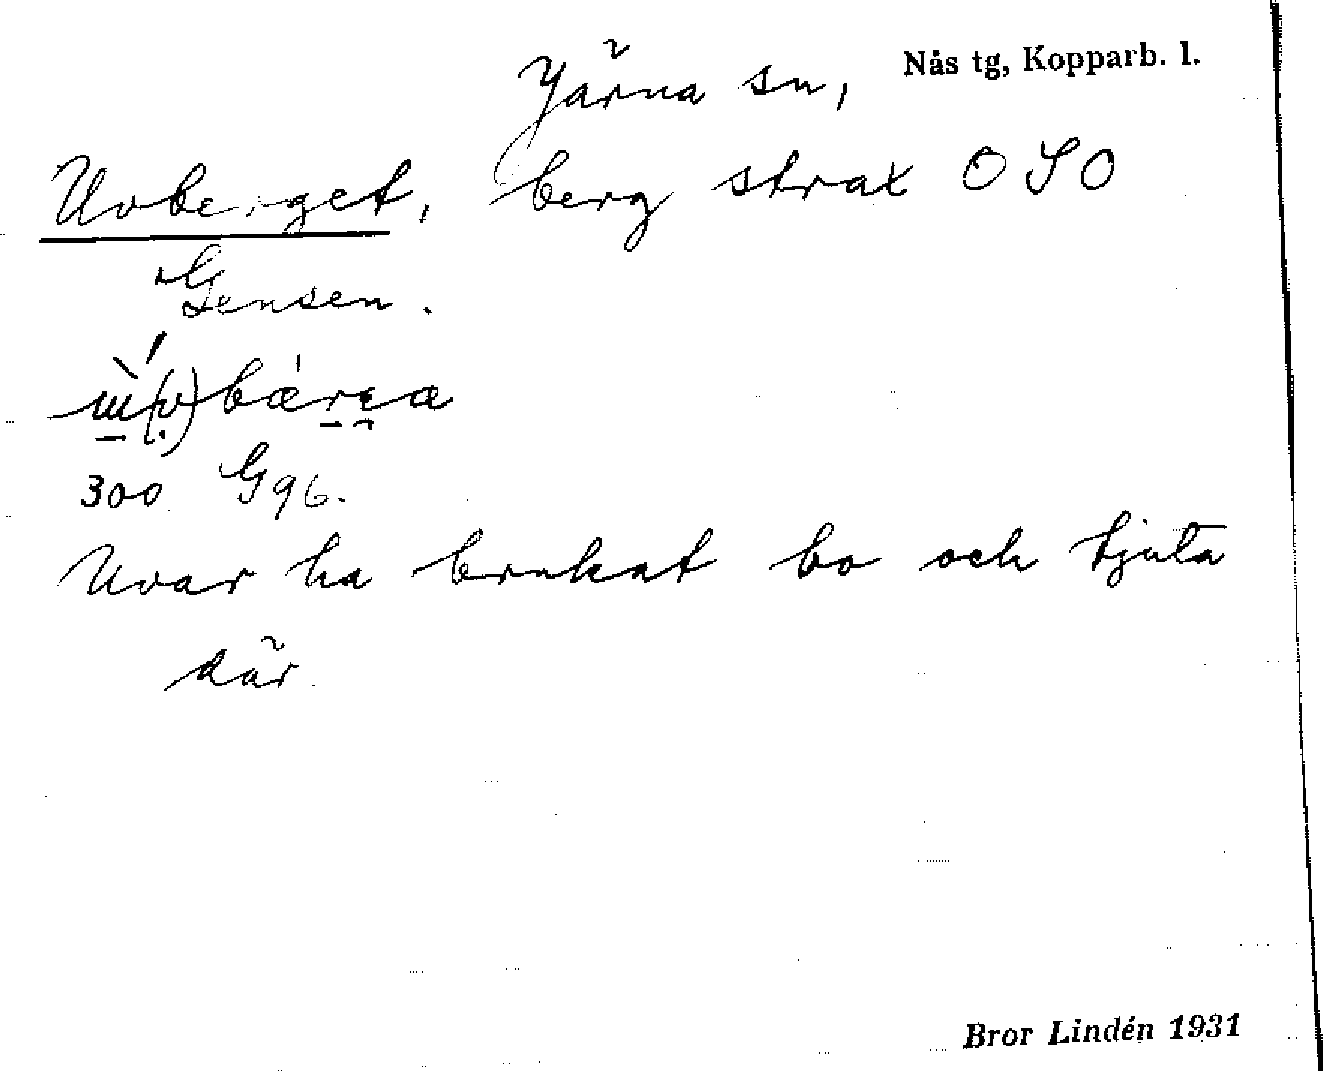 Järna sn, Nås tg, Kopparb. l.
Uvberget, berg strax OSO
Gensen.
300 G96.
Uvar ha brukat bo och tjuta
där
Bror Lindén 1931